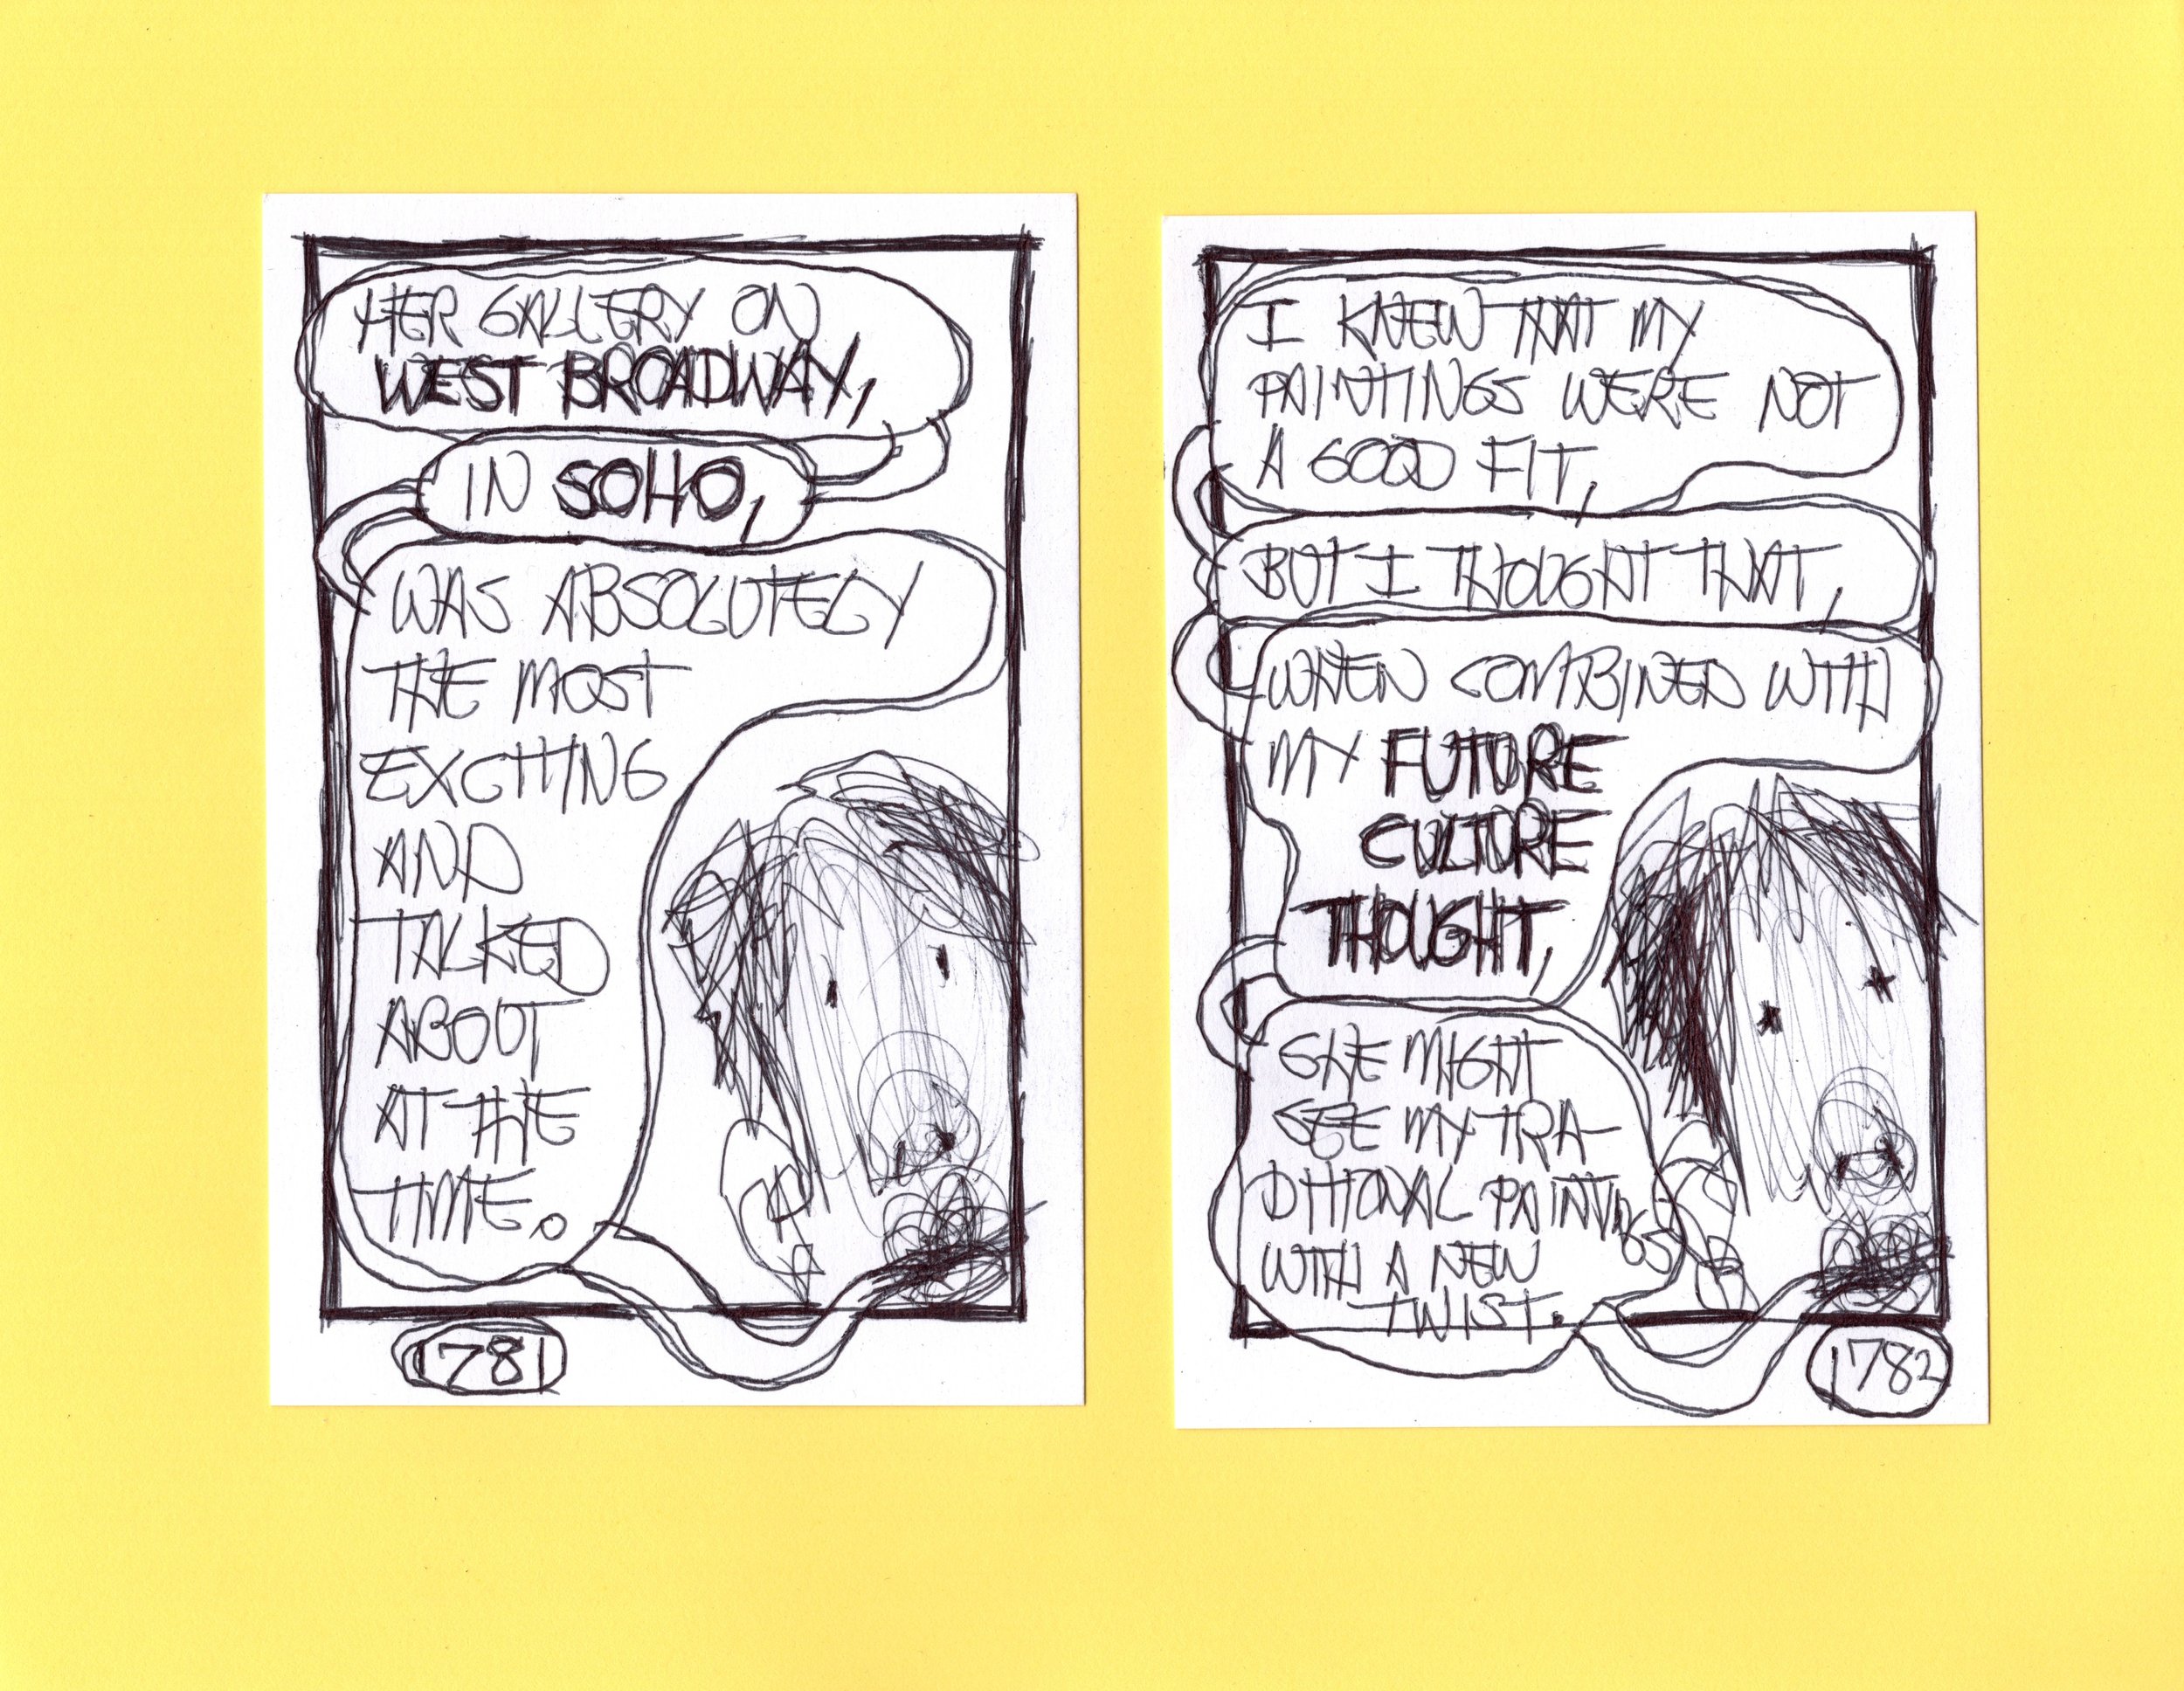 HER GALLERY ON
WEST BROADWAY,
IN SOHO,
WAS ABSOLUTELY
THE MOST
EXCITING
AND
TALKED
ABOUT
AT THE
TIME.
1781
I KNEW THAT MY
PAINTINGS WERE NOT
A GOOD FIT,
BUT I THOUGHT THAT,
WHEN COMBINED WITH
MY FUTURE
CULTURE
THOUGHT,
SHE MIGHT
SEE MY TRA-
DITIONAL PAINTINGS
WITH A NEW
TWIST.
1782